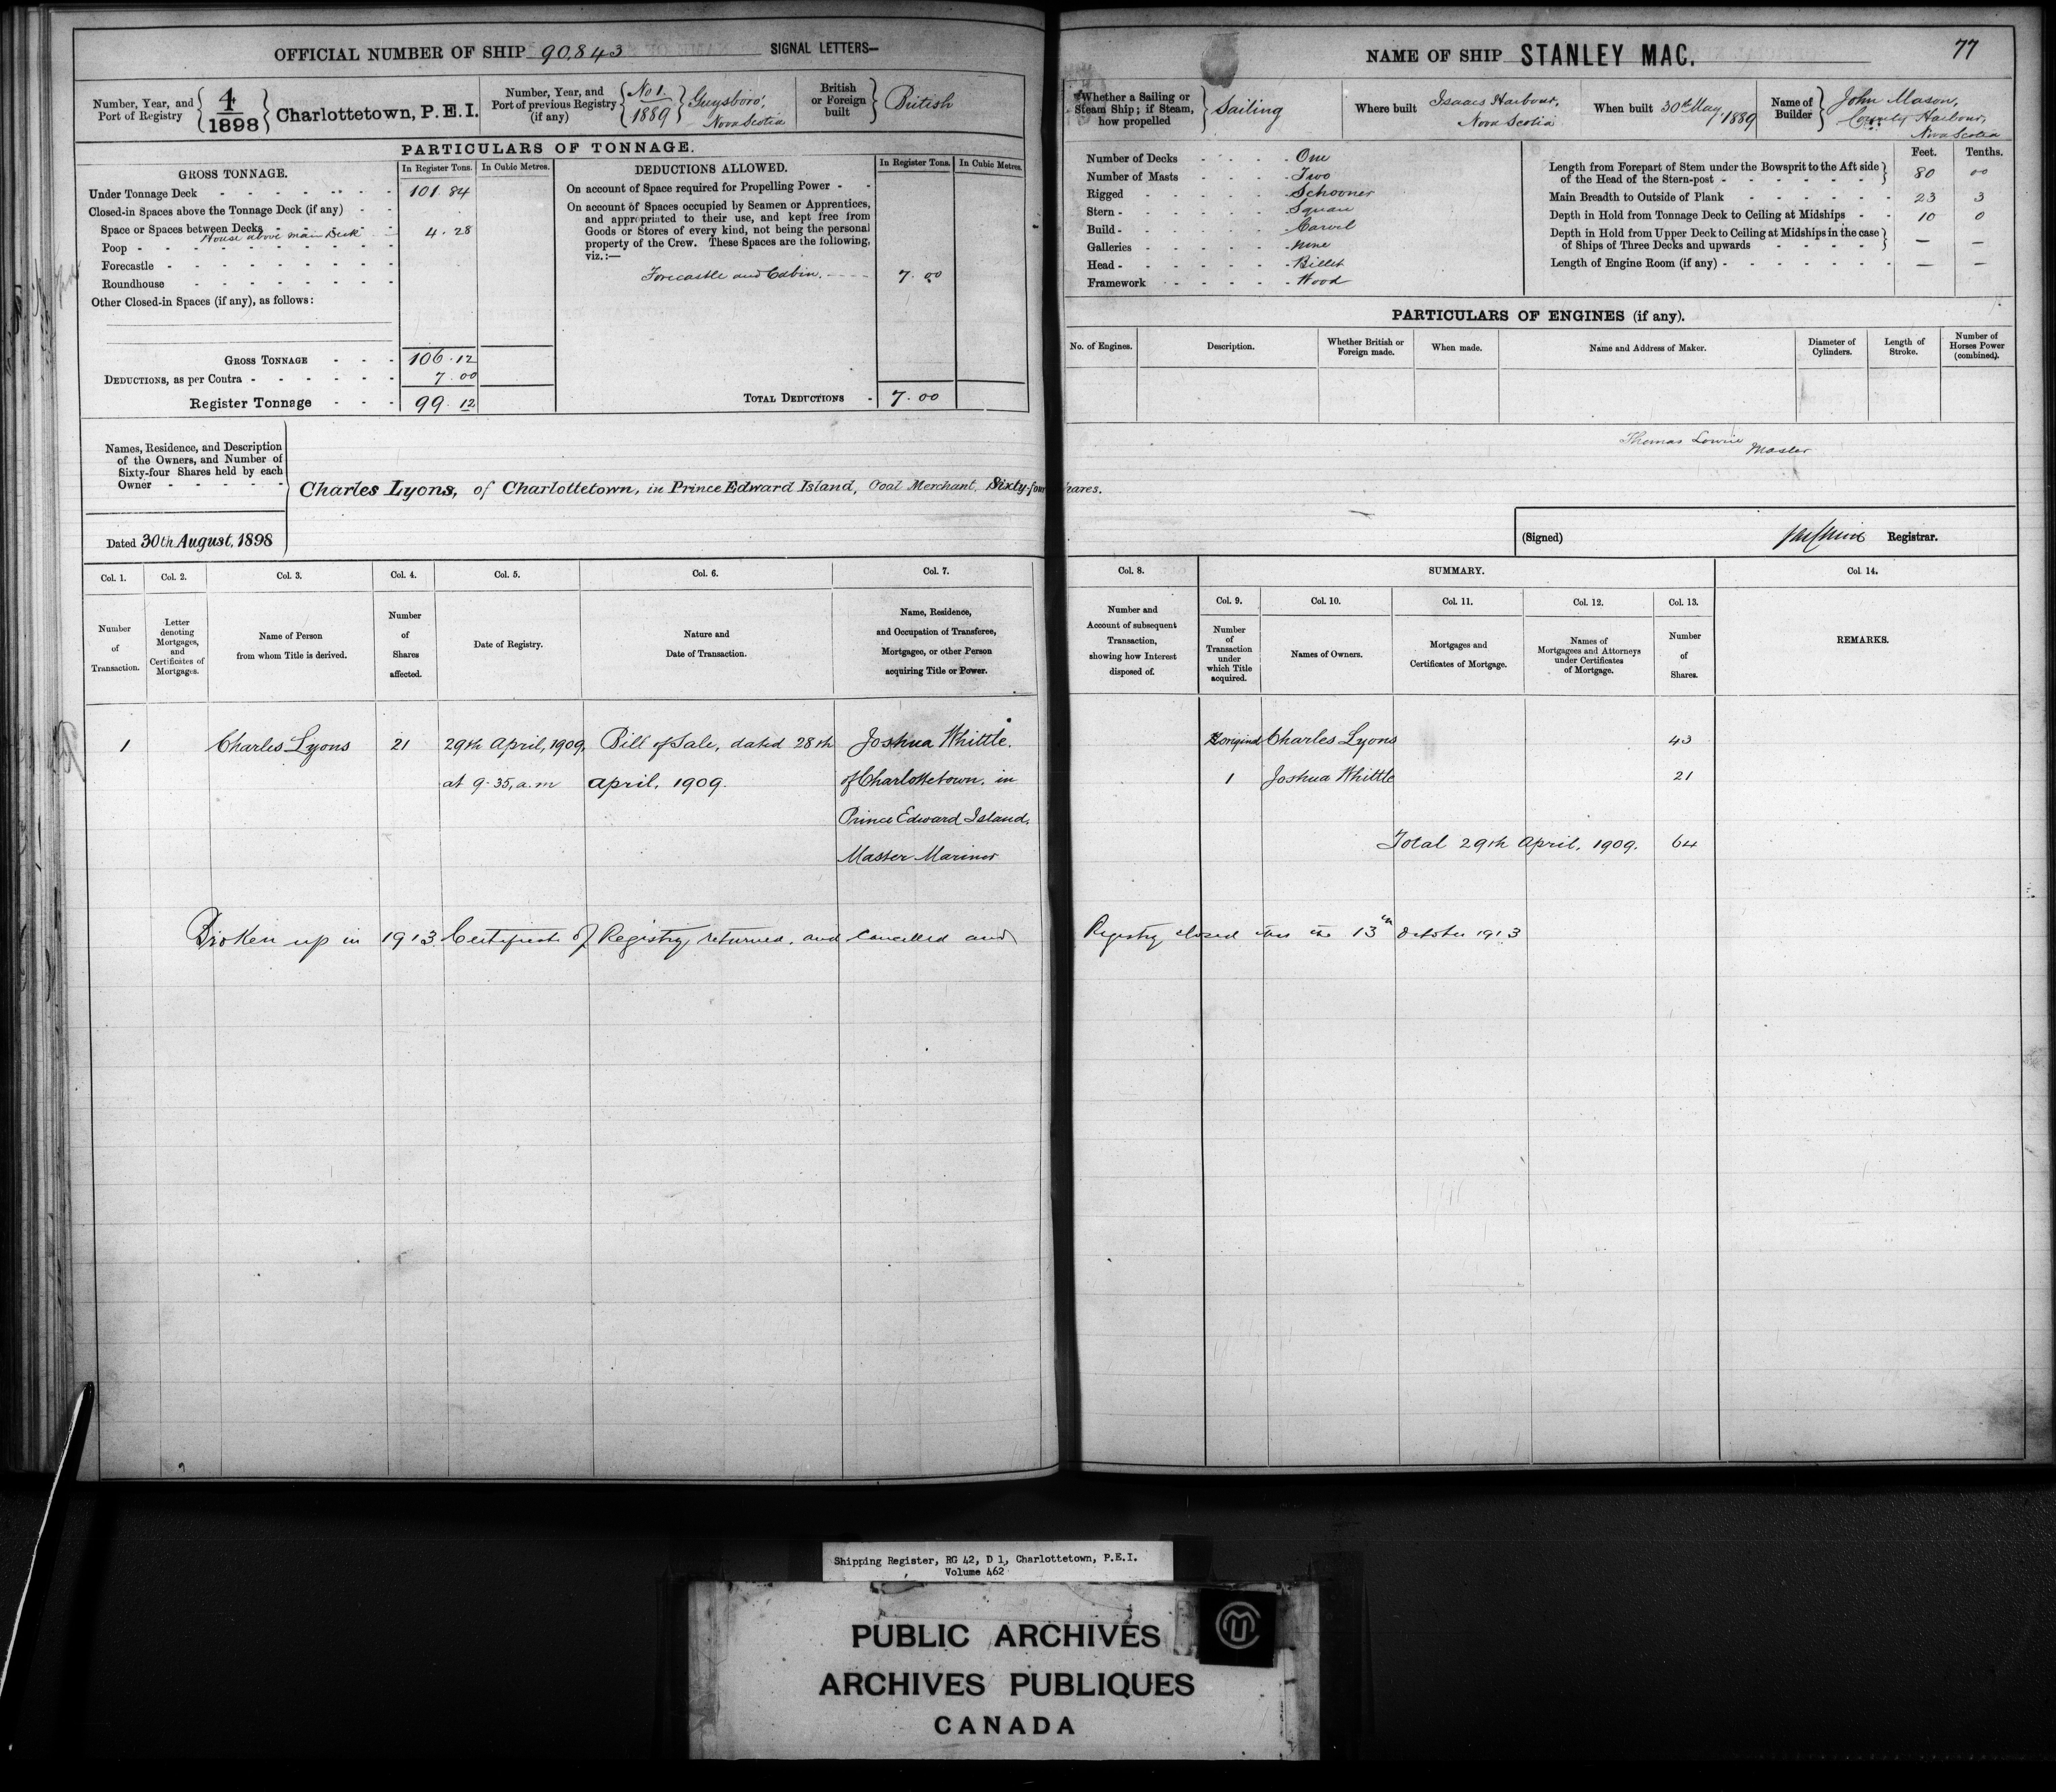 OFFICIAL NUMBER OF SHIP 90,843 SIGNAL LETTERS—
Number, Year, and Port of Registry { 4/1898 } Charlottetown, P.E.I.
Number, Year, and Port of previous Registry (if any) { No 1. / 1889 } Guysboro', Nova Scotia
British or Foreign built } British
PARTICULARS OF TONNAGE.
GROSS TONNAGE. In Register Tons. In Cubic Metres.
Under Tonnage Deck 101.84
Closed-in Spaces above the Tonnage Deck (if any)
Space or Spaces between Decks
House above main Deck 4.28
Poop
Forecastle
Roundhouse
Other Closed-in Spaces (if any), as follows:
GROSS TONNAGE 106.12
DEDUCTIONS, as per Contra 7.00
Register Tonnage 99.12
DEDUCTIONS ALLOWED. In Register Tons. In Cubic Metres.
On account of Space required for Propelling Power
On account of Spaces occupied by Seamen or Apprentices,
and appropriated to their use, and kept free from
Goods or Stores of every kind, not being the personal
property of the Crew. These Spaces are the following,
viz.:—
Forecastle and Cabin. 7.00
TOTAL DEDUCTIONS 7.00
Names, Residence, and Description
of the Owners, and Number of
Sixty-four Shares held by each
Owner
Charles Lyons, of Charlottetown, in Prince Edward Island, Coal Merchant, Sixty-four
Dated 30th August, 1898
Col. 1. Col. 2. Col. 3. Col. 4. Col. 5. Col. 6. Col. 7.
Number of Transaction.
Letter denoting Mortgages, and Certificates of Mortgages.
Name of Person from whom Title is derived.
Number of Shares affected.
Date of Registry.
Nature and Date of Transaction.
Name, Residence, and Occupation of Transferee, Mortgagee, or other Person acquiring Title or Power.
1 Charles Lyons 21 29th April, 1909, Bill of Sale, dated 28th Joshua Whittle.
at 9.35, a.m April, 1909. of Charlottetown, in
Prince Edward Island.
Master Mariner
Broken up in 1913. Certificate of Registry returned, and cancelled and
NAME OF SHIP STANLEY MAC. 77
Whether a Sailing or Steam Ship; if Steam, how propelled } Sailing
Where built Isaacs Harbour, Nova Scotia
When built 30th May, 1889
Name of Builder } John Mason, Country Harbour, Nova Scotia
Number of Decks One
Number of Masts Two
Rigged Schooner
Stern Square
Build Carvel
Galleries None
Head Billet
Framework Wood
Feet. Tenths.
Length from Forepart of Stem under the Bowsprit to the Aft side
of the Head of the Stern-post 80 00
Main Breadth to Outside of Plank 23 3
Depth in Hold from Tonnage Deck to Ceiling at Midships 10 0
Depth in Hold from Upper Deck to Ceiling at Midships in the case
of Ships of Three Decks and upwards — —
Length of Engine Room (if any) — —
PARTICULARS OF ENGINES (if any).
No. of Engines. Description. Whether British or Foreign made. When made. Name and Address of Maker. Diameter of Cylinders. Length of Stroke. Number of Horses Power (combined).
Thomas Lowrie Master
hares.
(Signed) Registrar.
Col. 8. SUMMARY. Col. 14.
Col. 9. Col. 10. Col. 11. Col. 12. Col. 13.
Number and Account of subsequent Transaction, showing how Interest disposed of.
Number of Transaction under which Title acquired.
Names of Owners.
Mortgages and Certificates of Mortgage.
Names of Mortgagees and Attorneys under Certificates of Mortgage.
Number of Shares.
REMARKS.
original Charles Lyons 43
1 Joshua Whittle 21
Total 29th April, 1909. 64
Registry closed this 13th October 1913
Shipping Register, RG 42, D 1, Charlottetown, P.E.I.
Volume 462
PUBLIC ARCHIVES
ARCHIVES PUBLIQUES
CANADA